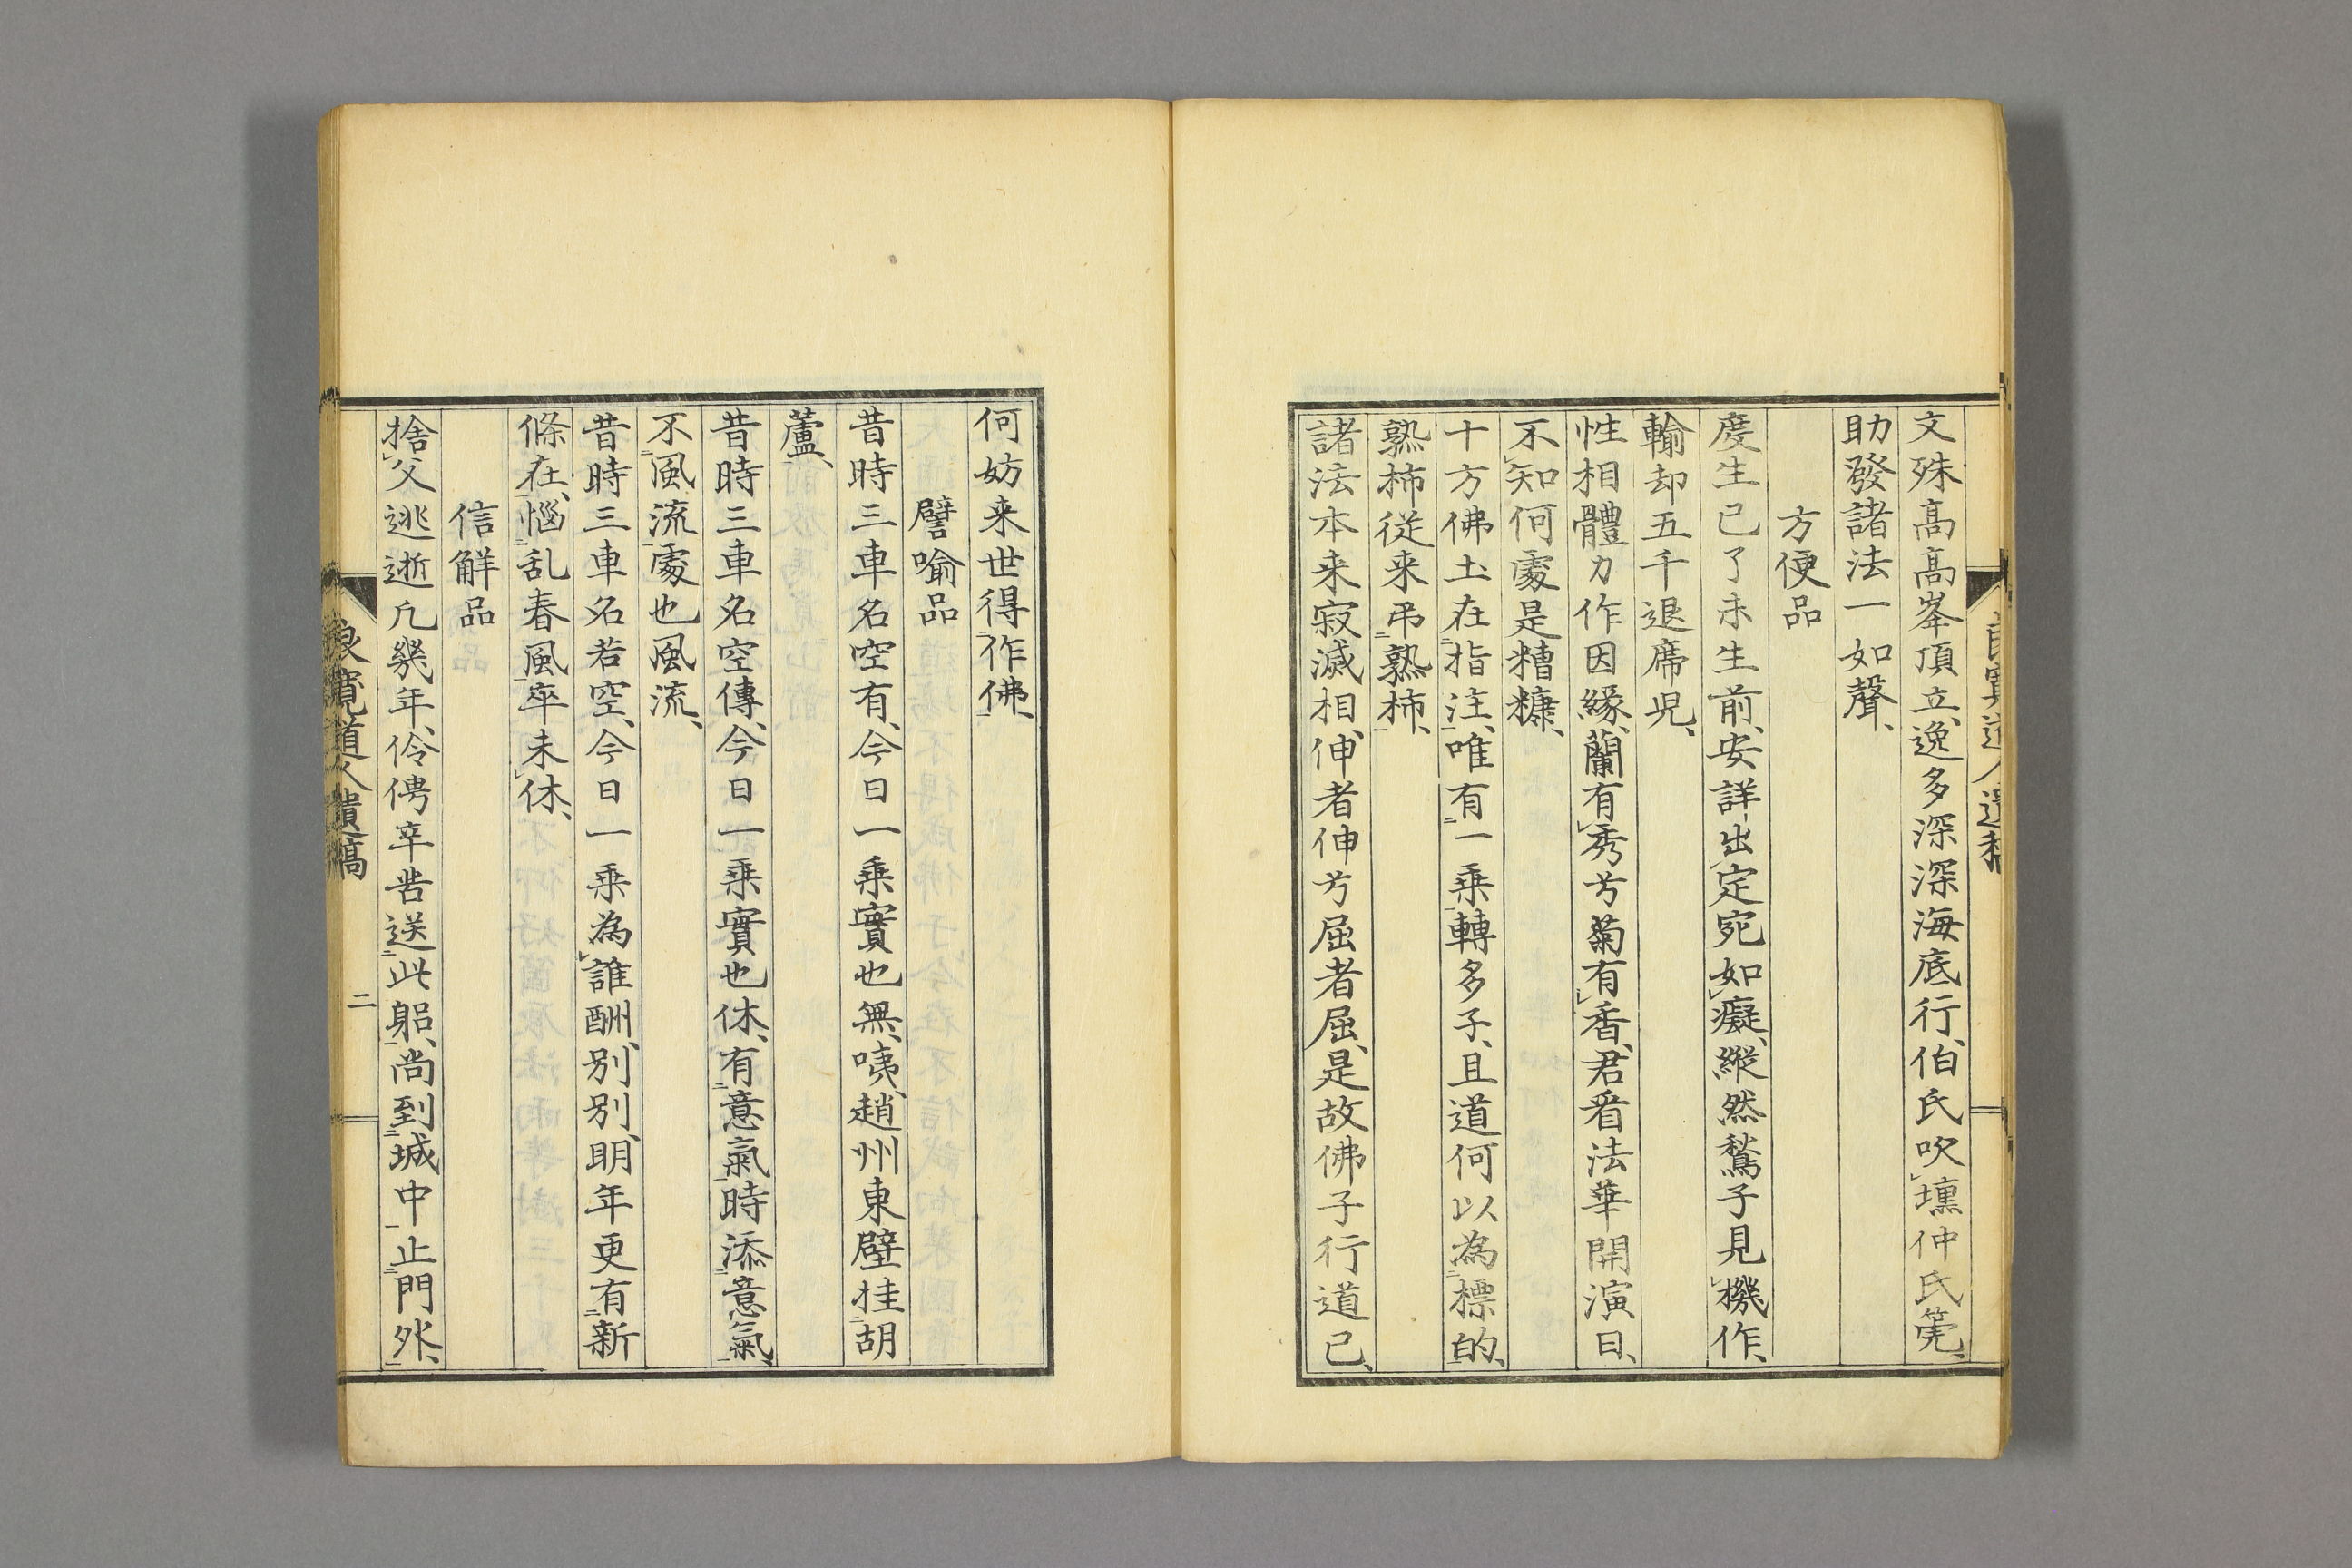 文殊高高峯頂立、逸多深深海底行、伯氏吹壎仲氏篪、
助發諸法一如聲、
方便品
度生已了未生前、安詳出定宛如癡、縱然鶖子見機作、
輸却五千退席児、
性相體力作因緣、蘭有秀兮菊有香、君看法華開演日、
不知何處是糟糠、
十方佛土在指注、唯有一乗轉多子、且道何以為標的、
熟柿従来弔熟柿、
諸法本来寂滅相、伸者伸兮屈者屈、是故佛子行道已、
何妨来世得作佛、
譬喻品
昔時三車名空有、今日一乗實也無、咦、趙州東壁挂胡
蘆、
昔時三車名空傳、今日一乗實也休、有意氣時添意氣、
不風流處也風流、
昔時三車名若空、今日一乗為誰酬、別別、明年更有新
條在、惱乱春風卒未休、
信解品
捨父逃逝凢幾年、伶俜辛苦送此躬、尚到城中止門外、
道人遺稿
二